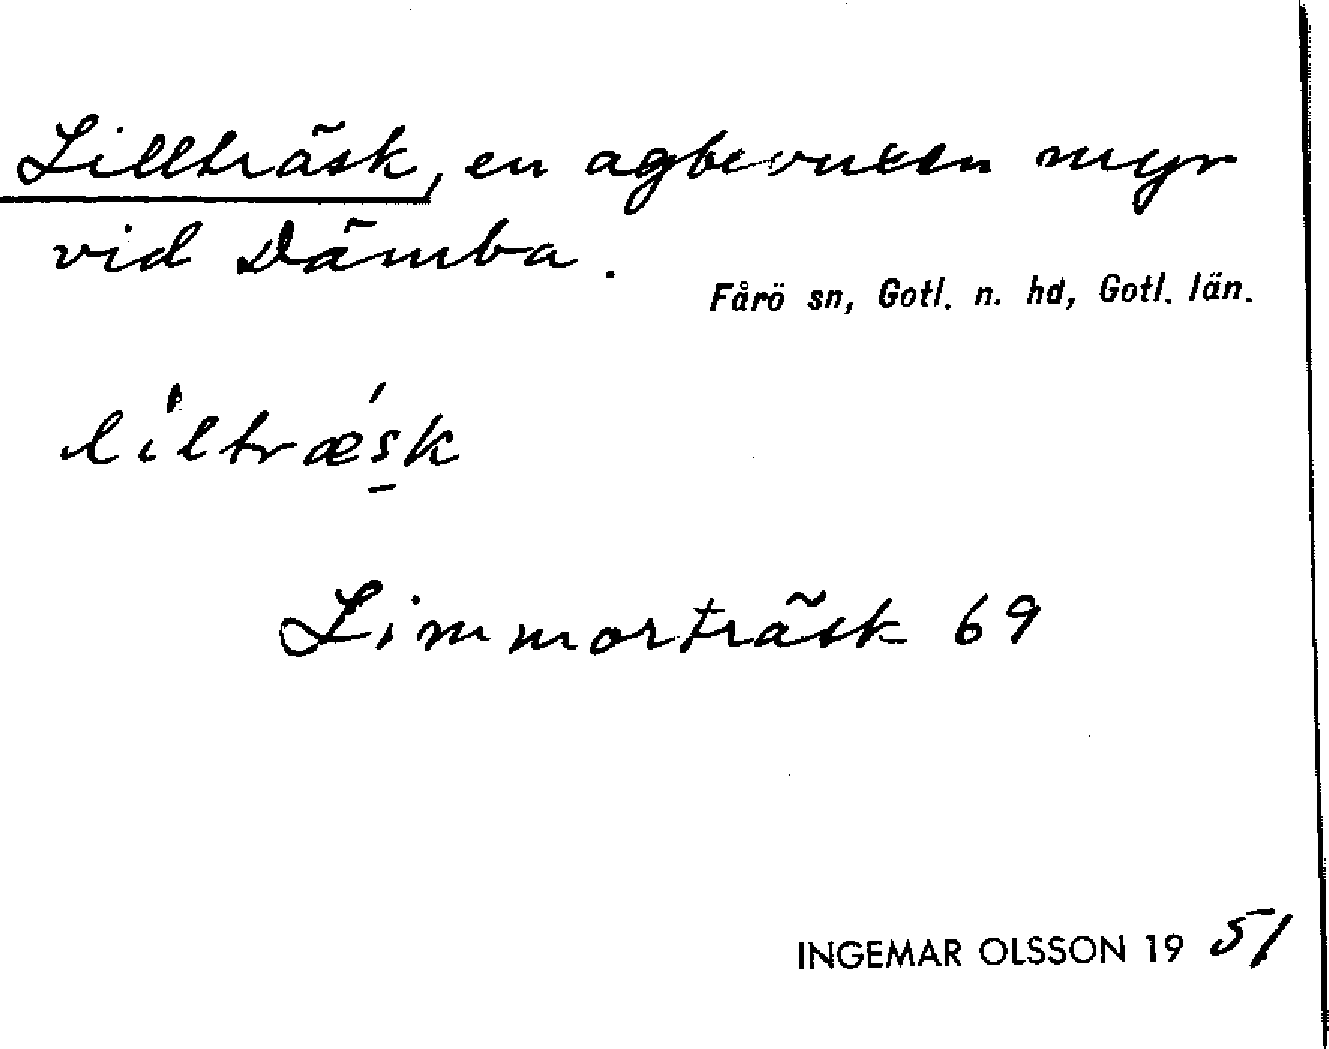 Lillträsk, en agbevuxen myr
vid Dämba.
Fårö sn, Gotl. n. hd, Gotl. län.
lìltrǽs̱k
Limmorträsk 69
INGEMAR OLSSON 19 51